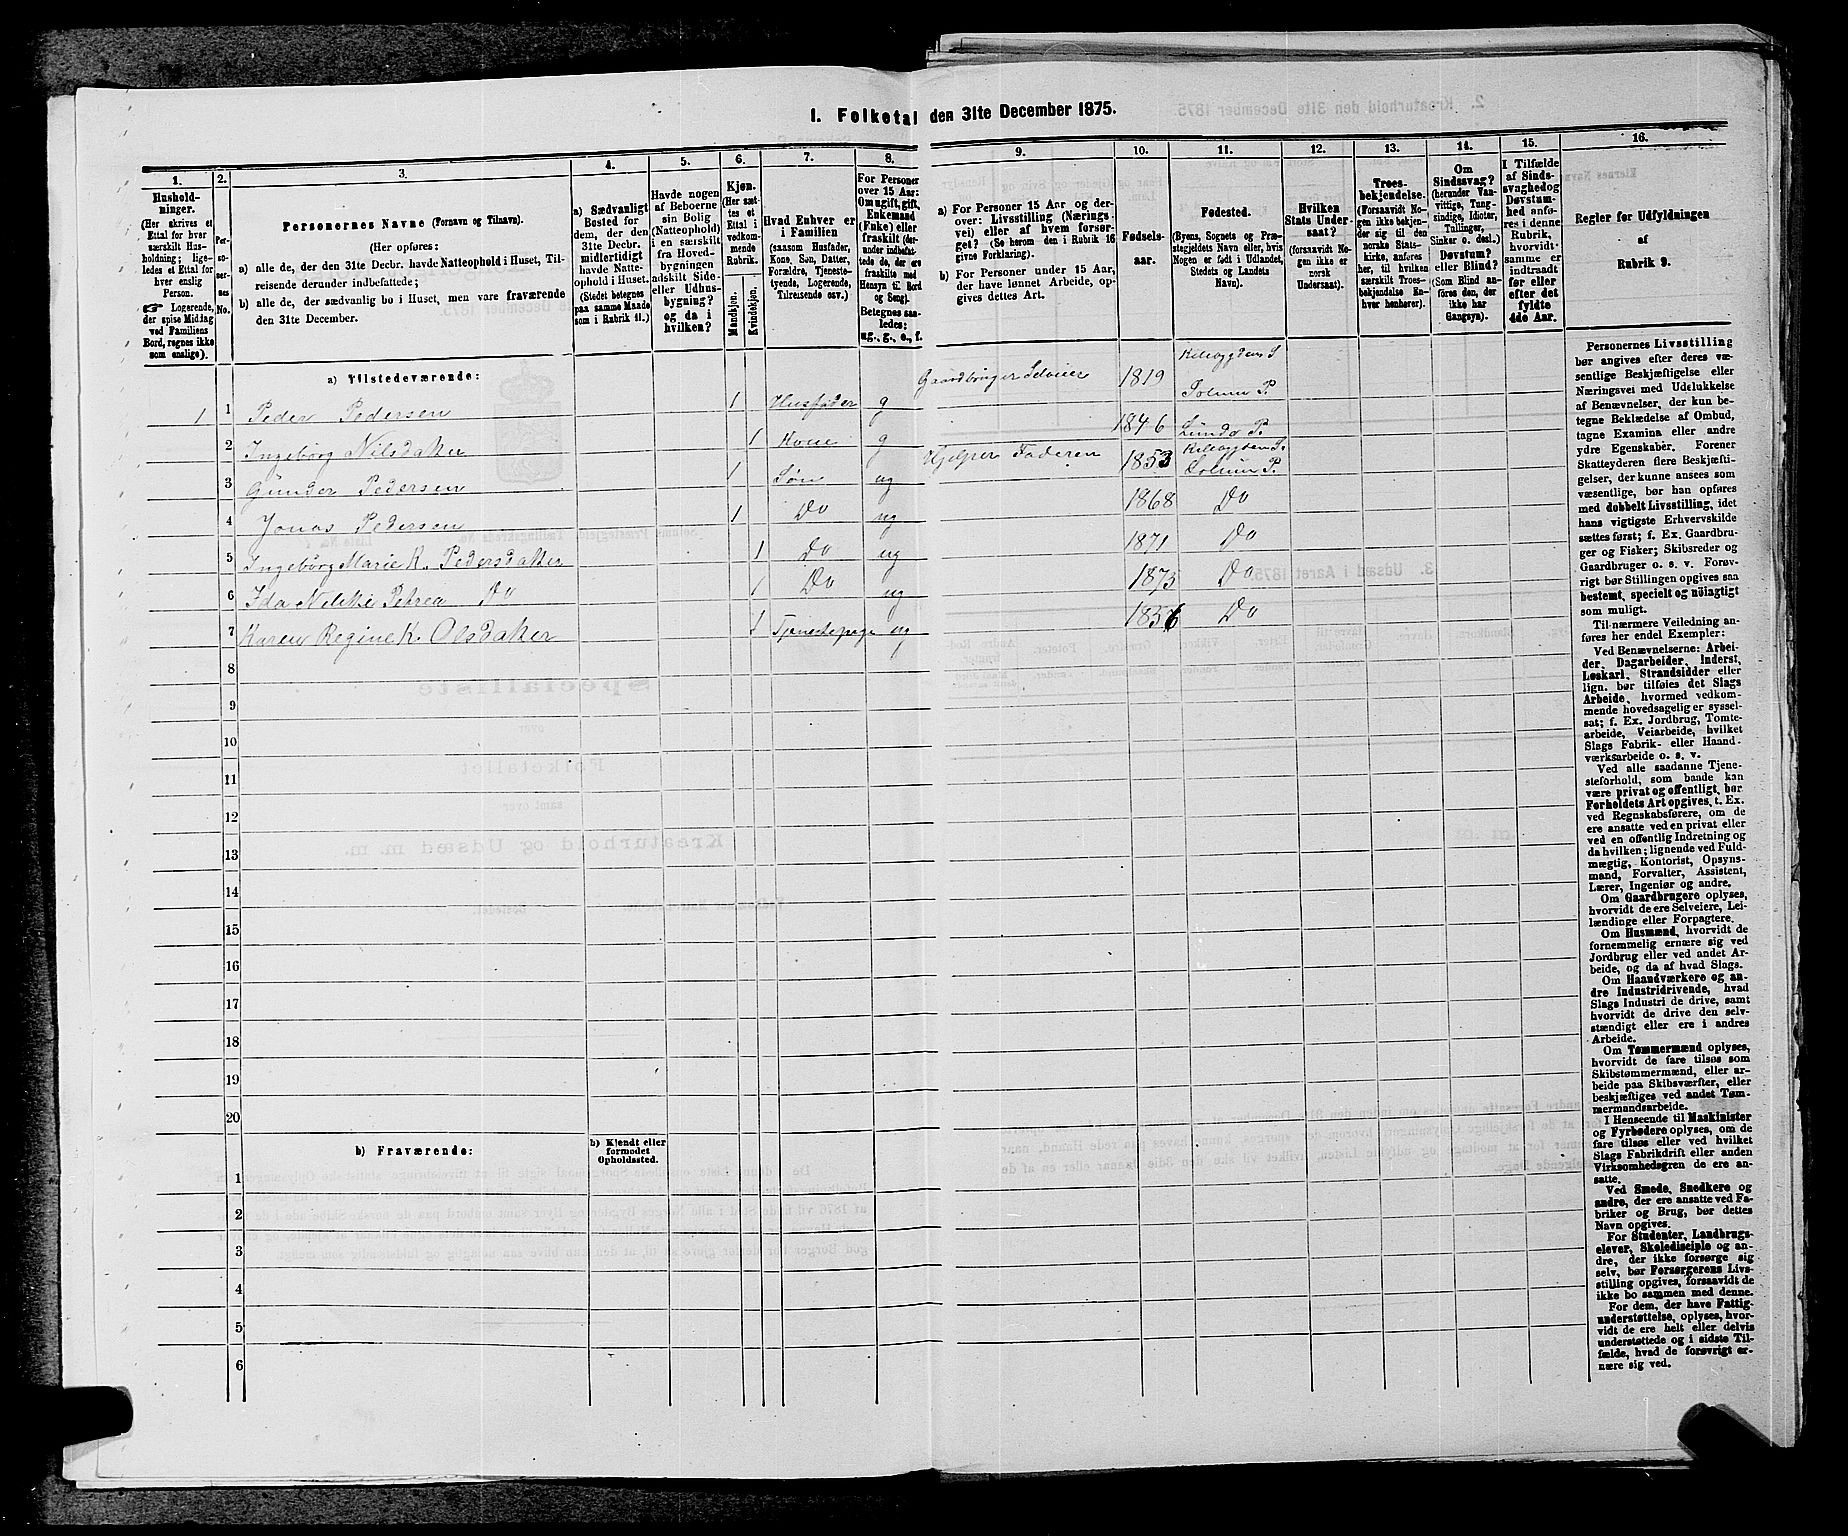 I. Folketal den 31te December 1875.
1.
Hushold-
ninger.
(Her skrives et
Ettal for hver
særskilt Hus-
holdning; lige-
ledes et Ettal for
hver enslig
Person.
☞ Logerende,
der spise Middag
ved Familiens
Bord, regnes ikke
som enslige).
2.
Per-
so-
ner-
nes
No.
3.
Personernes Navne (Fornavn og Tilnavn).
(Her opføres:
a) alle de, der den 31te Decbr. havde Natteophold i Huset, Til-
reisende derunder indbefattede;
b) alle de, der sædvanlig bo i Huset, men vare fraværende
den 31te December.
4.
a) Sædvanligt
Bosted for
dem, der den
31te Decbr.
midlertidigt
havde Natte-
ophold i Huset.
(Stedet betegnes
paa samme Maade
som i Rubrik 11.)
5.
Havde nogen
af Beboerne
sin Bolig
(Natteophold)
i en særskilt
fra Hoved-
bygningen
adskilt Side-
eller Udhus-
bygning?
og da i
hvilken?
6.
Kjøn.
(Her sæt-
tes et
Ettal i
vedkom-
mende
Rubrik.
Mandkjøn.
Kvindekjøn.
7.
Hvad Enhver er
i Familien
(saasom Husfader,
Kone, Søn, Datter,
Forældre, Tjeneste-
tyende, Logerende,
Tilreisende osv.)
8.
For Personer
over 15 Aar:
Om ugift, gift,
Enkemand
(Enke) eller
fraskilt (der-
under indbefat-
tede de, der ere
fraskilte med
Hensyn til Bord
og Seng).
Betegnes saa-
ledes:
ug., g., e., f.
9.
a) For Personer 15 Aar og der-
over: Livsstilling (Nærings-
vei) eller af hvem forsør-
get? (Se herom den i Rubrik 16
givne Forklaring).
b) For Personer under 15 Aar,
der have lønnet Arbeide, op-
gives dettes Art.
10.
Fødsels-
aar.
11.
Fødested.
(Byens, Sognets og Præ-
stegjeldets Navn eller, hvis
Nogen er født i Udlandet,
Stedets og Landets
Navn).
12.
Hvilken
Stats Under-
saat?
(forsaavidt No-
gen ikke er
norsk
Undersaat).
13.
Troes-
bekjendelse.
(Forsaavidt No-
gen ikke bekjen-
der sig til den
norske Stats-
kirke, anføres
her, til hvilken
særskilt Troes-
bekjendelse En-
hver henhører).
14.
Om
Sindssvag?
(herunder Van-
vittige, Tung-
sindige, Idioter,
Tullinger,
Sinker o. desl.)
Døvstum?
eller Blind?
(Som Blind an-
føres den, der
ikke har
Gangsyn).
15.
I Tilfælde
af Sinds-
svaghed og
Døvstum-
hed anfø-
res i denne
Rubrik,
hvorvidt
samme er
indtraadt
før eller
efter det
fyldte
4de Aar.
16.
Regler for Udfyldningen
af
Rubrik 9.
a) Tilstedeværende:
1 1 Peder Pedersen 1 Husfader g Gaardbruger Selveier 1819 Kilebygdens S Solum P.
2 Ingebørg Nilsdatter 1 Kone g 1846 Lunde P.
3 Gunder Pedersen 1 Søn ug Hjelper Faderen 1853 Kilebygdens S. Solum P.
4 Jonas Pedersen 1 Do ug 1868 Do
5 Ingebørg Marie K. Pedersdatter 1 Do ug 1871 Do
6 Ida Petrea Do 1 Do ug 1875 Do
7 Karen Regine K. Olsdatter 1 Tjenestepige ug 1856 Do
8
9
10
11
12
13
14
15
16
17
18
19
20
b) Fraværende:
b) Kjendt eller
formodet
Opholdssted.
1
2
3
4
5
6
Personernes Livsstilling
bør angives efter deres væ-
sentlige Beskjæftigelse eller
Næringsvei med Udelukkelse
af Benævnelser, der kun be-
tegne Beklædelse af Ombud,
tagne Examina eller andre
ydre Egenskaber. Forener
Skatteyderen flere Beskjæfti-
gelser, der kunne ansees som
væsentlige, bør han opføres
med dobbelt Livsstilling, idet
hans vigtigste Erhvervskilde
sættes først; f. Ex. Gaardbru-
ger og Fisker; Skibsreder og
Gaardbruger o. s. v. Forøv-
rigt bør Stillingen opgives saa
bestemt, specielt og nöiagtigt
som muligt.
Til nærmere Veiledning an-
føres her endel Exempler:
Ved Benævnelserne: Arbei-
der, Dagarbeider, Inderst,
Løskarl, Strandsidder eller
lign. bør tilføies det Slags
Arbeide, hvormed vedkom-
mende hovedsagelig er syssel-
sat; f. Ex. Jordbrug, Tomte-
arbeide, Veiarbeide, hvilket
Slags Fabrik- eller Haand-
værksarbeide o. s. v.
Ved alle saadanne Tjene-
steforhold, som baade kan
være privat og offentligt, bør
Forholdets Art opgives, t. Ex.
ved Regnskabsførere, om de
ere ansatte ved en privat eller
ved en offentlig Indretning og
da hvilken; lignende ved Fuld-
mægtig, Kontorist, Opsyns-
mand, Forvalter, Assistent,
Lærer, Ingeniør og andre.
Om Gaardbrugere oplyses,
hvorvidt de ere Selveiere, Lei-
lændinge eller Forpagtere.
Om Husmænd, hvorvidt de
fornemmelig ernære sig ved
Jordbrug eller ved andet Ar-
beide, og da af hvad Slags.
Om Haandværkere og an-
dre Industridrivende, hvad
Slags Industri de drive, samt
hvorvidt de drive den selv-
stændigt eller ere i andres
Arbeide.
Om Tømmermænd oplyses,
hvorvidt de fare tilsøs som
Skibstømmermænd, eller ar-
beide paa Skibsværfter, eller
beskjæftiges ved andet Tøm-
mermandsarbeide.
I Henseende til Maskinister
og Fyrbødere oplyses, om de
fare tilsøs eller ved hvilket
Slags Fabrikdrift eller anden
Virksomhedsgren de ere an-
satte.
Ved Smede, Snedkere og
andre, der ere ansatte ved Fa-
briker og Brug, bør dettes
Navn opgives.
For Studenter, Landbrugs-
elever, Skoledisciple og an-
dre, der ikke forsørge sig
selv, bør Forsørgerens Livs-
stilling opgives, forsaavidt de
ikke bo sammen med denne.
For dem, der have Fattig-
understøttelse, oplyses, hvor-
vidt de ere helt eller delvis
understøttede og i sidste Til-
fælde, hvad de forøvrigt er-
nære sig ved.